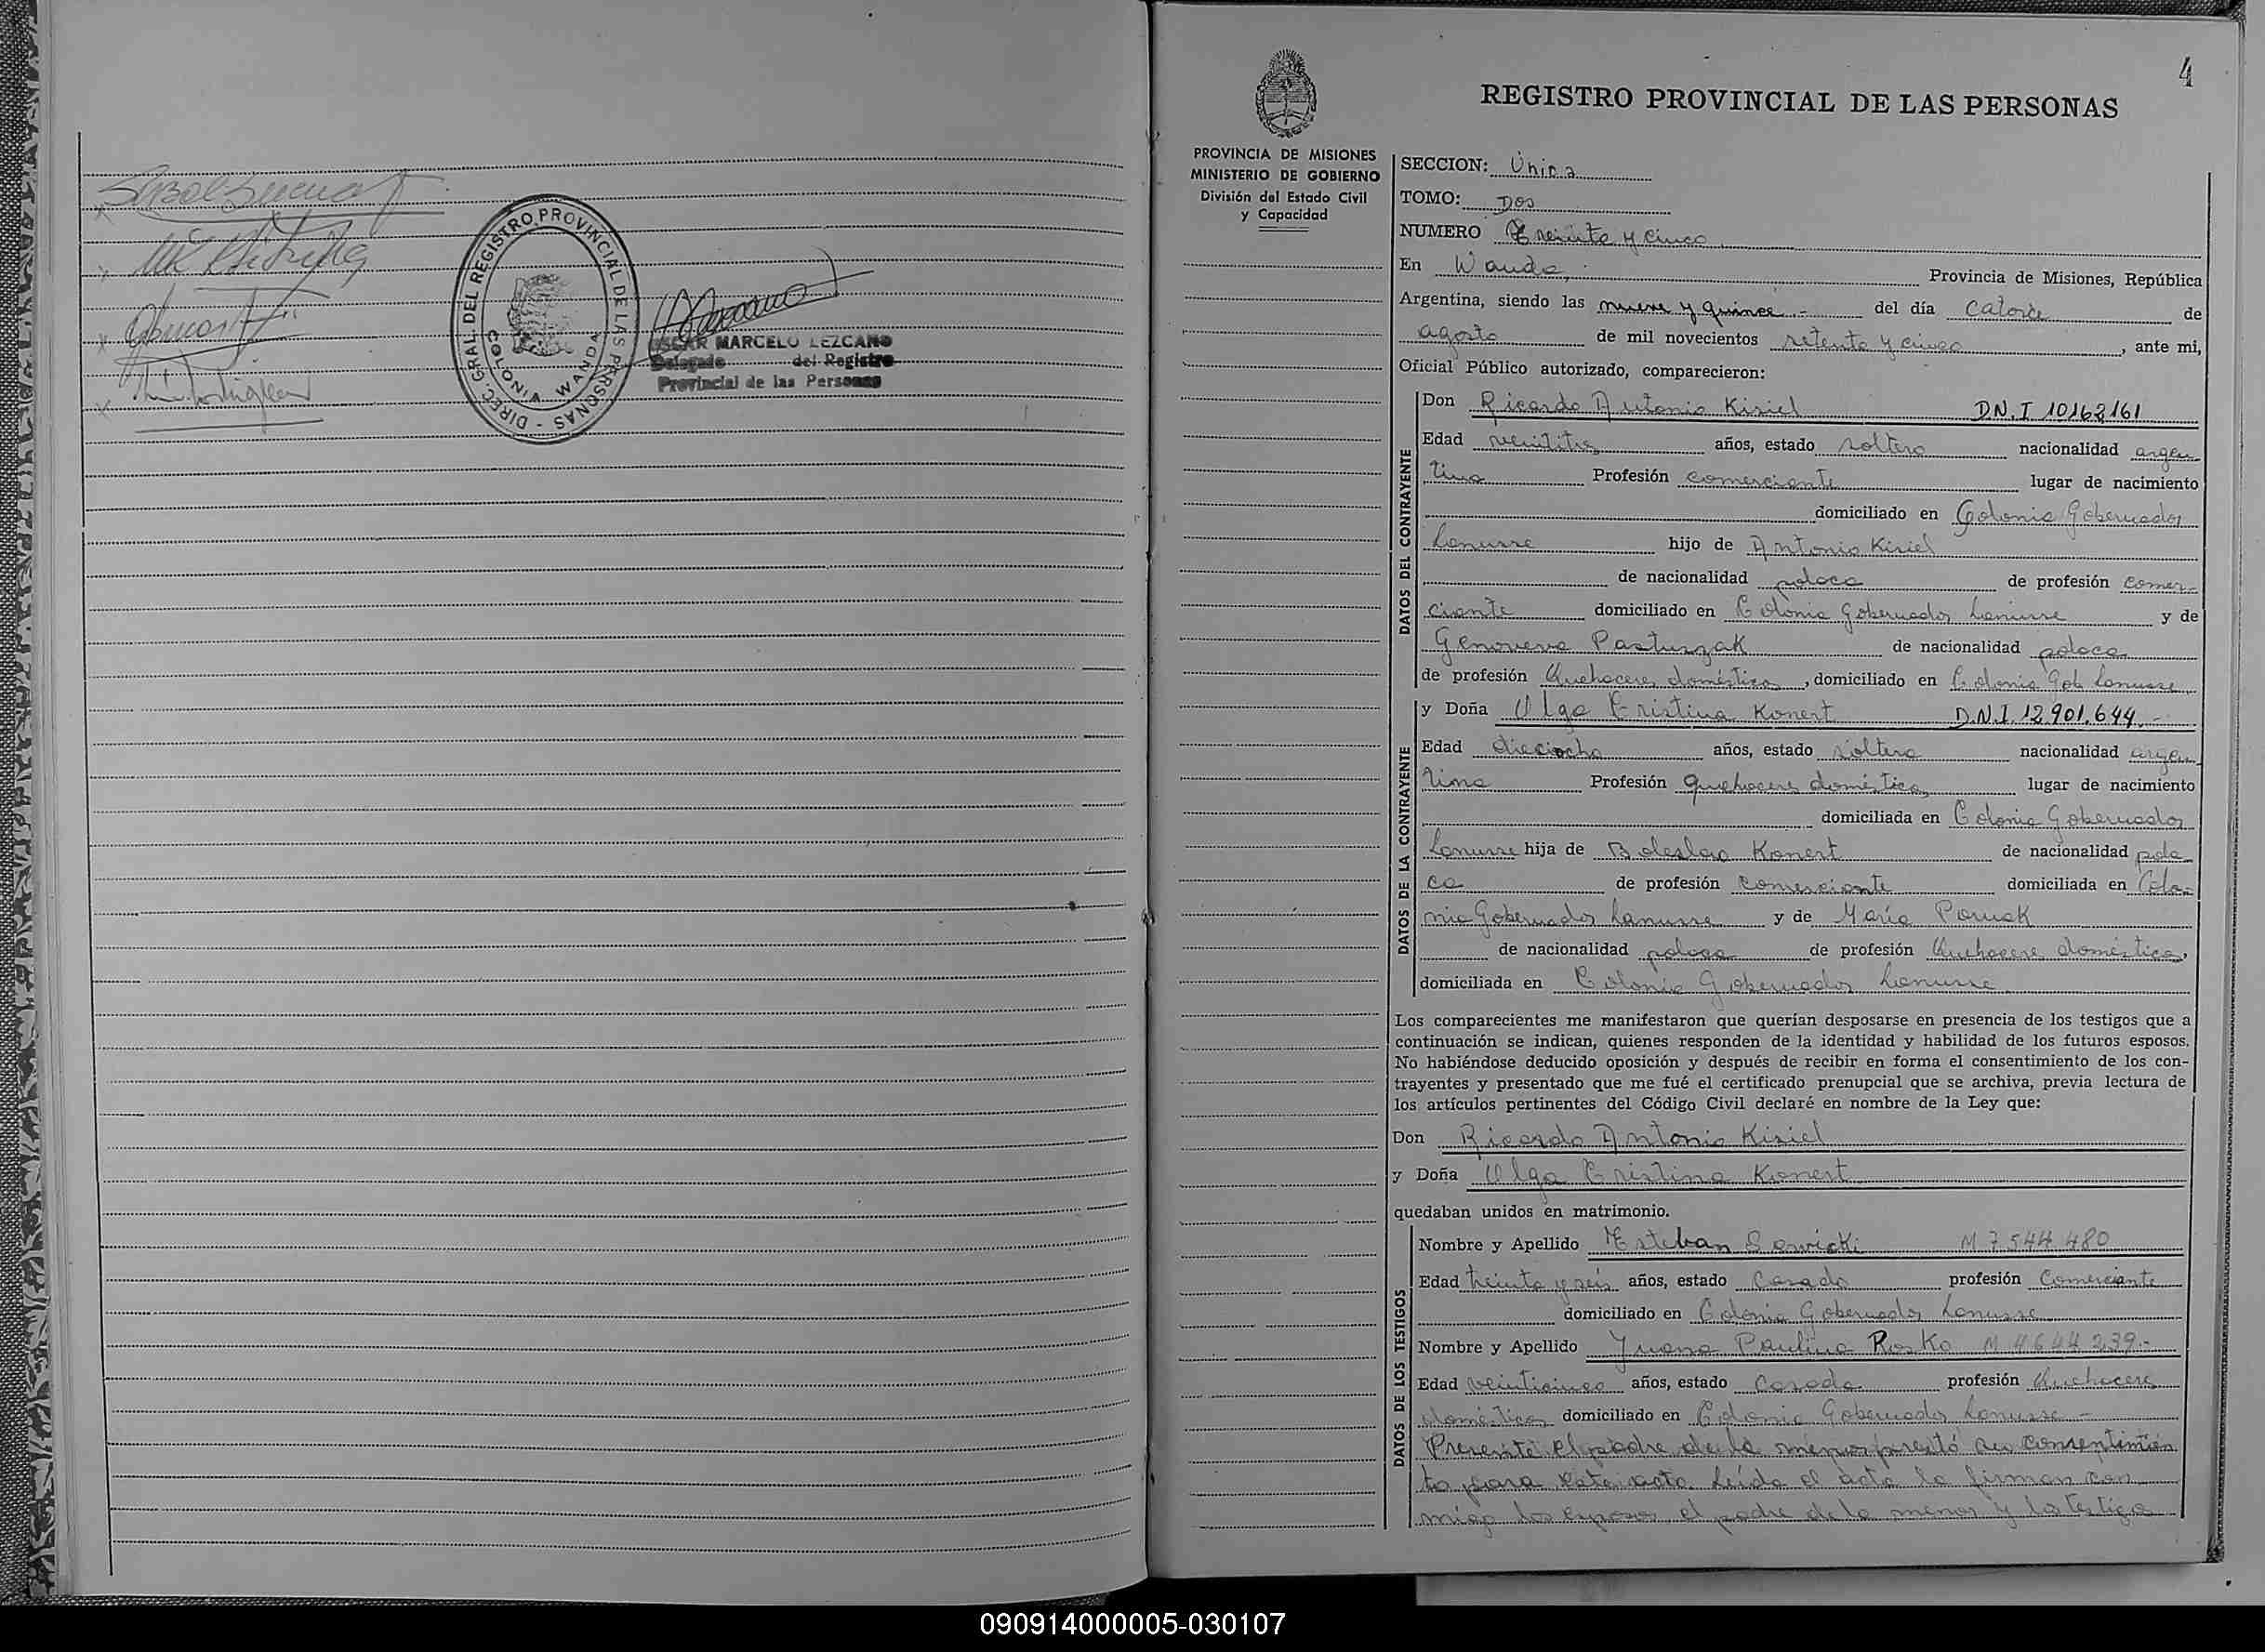 DIREC. GRAL. DEL REGISTRO PROVINCIAL DE LAS PERSONAS -
COLONIA WANDA
OSCAR MARCELO LEZCANO
Delegado del Registro
Provincial de las Personas
4
REGISTRO PROVINCIAL DE LAS PERSONAS
PROVINCIA DE MISIONES
MINISTERIO DE GOBIERNO
División del Estado Civil
y Capacidad
SECCION: Única
TOMO: Dos
NUMERO Treinta y cinco
En Wanda, Provincia de Misiones, República
Argentina, siendo las nueve y quince.- del día catorce de
agosto de mil novecientos setenta y cinco, ante mi,
Oficial Público autorizado, comparecieron:
DATOS DEL CONTRAYENTE
Don Ricardo Antonio Kisiel D.N.I 10162161
Edad veintitres años, estado soltero nacionalidad argen
tina Profesión comerciante lugar de nacimiento
domiciliado en Colonia Gobernador
Lanusse hijo de Antonio Kisiel
de nacionalidad polaca de profesión comer-
ciante domiciliado en Colonia Gobernador Lanusse y de
Genoveva Pasturzak de nacionalidad polaca
de profesión Quehaceres domésticos, domiciliado en Colonia Gob Lanusse
DATOS DE LA CONTRAYENTE
y Doña Olga Cristina Konert D.N.I. 12.901.644.-
Edad dieciocho años, estado soltera nacionalidad argen
tina Profesión quehaceres domésticos lugar de nacimiento
domiciliada en Colonia Gobernador
Lanusse hija de Boleslao Konert de nacionalidad pola
ca de profesión comerciante domiciliada en Colo-
nia Gobernador Lanusse y de María
de nacionalidad polaca de profesión Quehaceres domésticos,
domiciliada en Colonia Gobernador Lanusse
Los comparecientes me manifestaron que querían desposarse en presencia de los testigos que a
continuación se indican, quienes responden de la identidad y habilidad de los futuros esposos.
No habiéndose deducido oposición y después de recibir en forma el consentimiento de los con-
trayentes y presentado que me fué el certificado prenupcial que se archiva, previa lectura de
los artículos pertinentes del Código Civil declaré en nombre de la Ley que:
Don Ricardo Antonio Kisiel
y Doña Olga Cristina Konert
quedaban unidos en matrimonio.
DATOS DE LOS TESTIGOS
Nombre y Apellido Esteban Sawicki M 7 544 480
Edad treinta y seis años, estado Casado profesión Comerciante
domiciliado en Colonia Gobernador Lanusse
Nombre y Apellido Juana Paulina Rosko M 4644 239.-
Edad veinticinco años, estado Casada profesión Quehaceres
domésticos domiciliado en Colonia Gobernador Lanusse -
Presente el padre de la menor prestó su consentimien
to para este acto. Leída el acta la firman con
migo los esposos el padre de la menor y los testigos
090914000005-030107